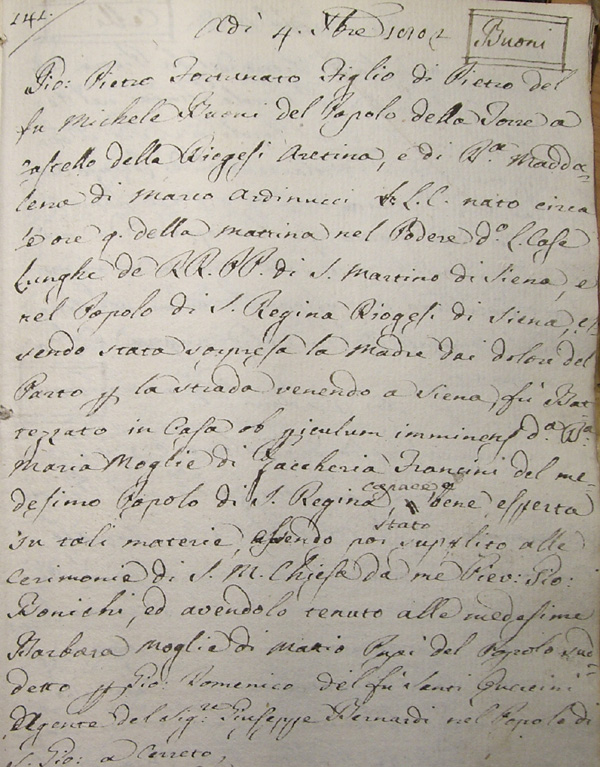 141.
Adì 4. Xbre 1802 Buoni
Gio: Pietro Fortunato Figlio di Pietro del
fu Michele Buoni del Popolo della Torre a
Castello della Diogesi Aretina, e di Dª. Madda-
lena di Marco Ardinucci L.C. nato circa
le ore 9. della mattina nel Podere dº. L. Case
Lunghe de RR. PP. di S. Martino di Siena, e
nel Popolo di S. Regina Diogesi di Siena, es
sendo stata sorpresa la Madre dai dolori del
Parto p la strada venendo a Siena, fù Bat
tezzato in Casa ob piculum imminens dª. Dª.
Maria Moglie di Zaccheria Francini del me-
desimo Popolo di S. Regina, capace, e bene esperta
in tali materie, essendo stato poi supplito alle
cerimonie di S. M. Chiesa da me Piev: Gio:
Bonichi, ed avendolo tenuto alle medesime
Barbara Moglie di Mario Pupi del Popolo sud
detto p Gio: Domenico del fù Santi
Agente del Sigre. Giuseppe Bernardi nel Popolo di
S. Gio: a Cerreto,